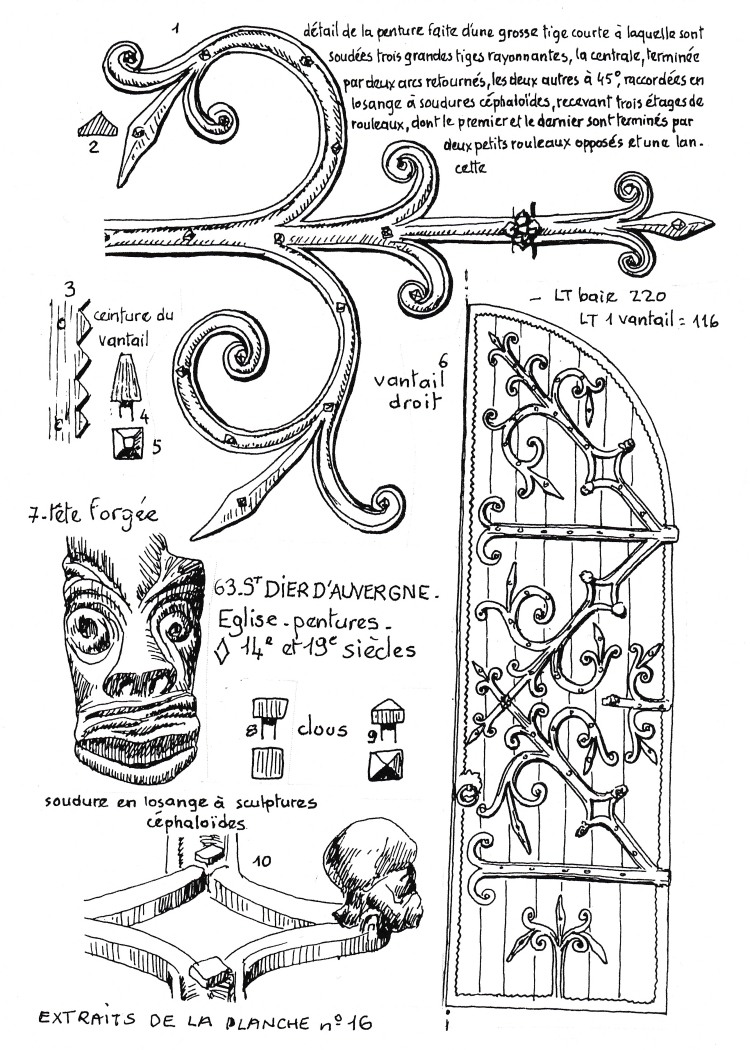 1
détail de la penture faite d'une grosse tige courte à laquelle sont
soudées trois grandes tiges rayonnantes, la centrale, terminée
par deux arcs retournés, les deux autres à 45°, raccordées en
losange à soudures céphaloïdes, recevant trois étages de
rouleaux, dont le premier et le dernier sont terminés par
deux petits rouleaux opposés et une lan-
cette
2
3
ceinture du
vantail
4
5
- LT baie 220
LT 1 vantail = 116
6
vantail
droit
7-tête forgée
63.ST DIER D'AUVERGNE.
Eglise-pentures-
14e et 19e siècles
8 clous 9
soudure en losange à sculptures
céphaloïdes
10
EXTRAITS DE LA PLANCHE n° 16